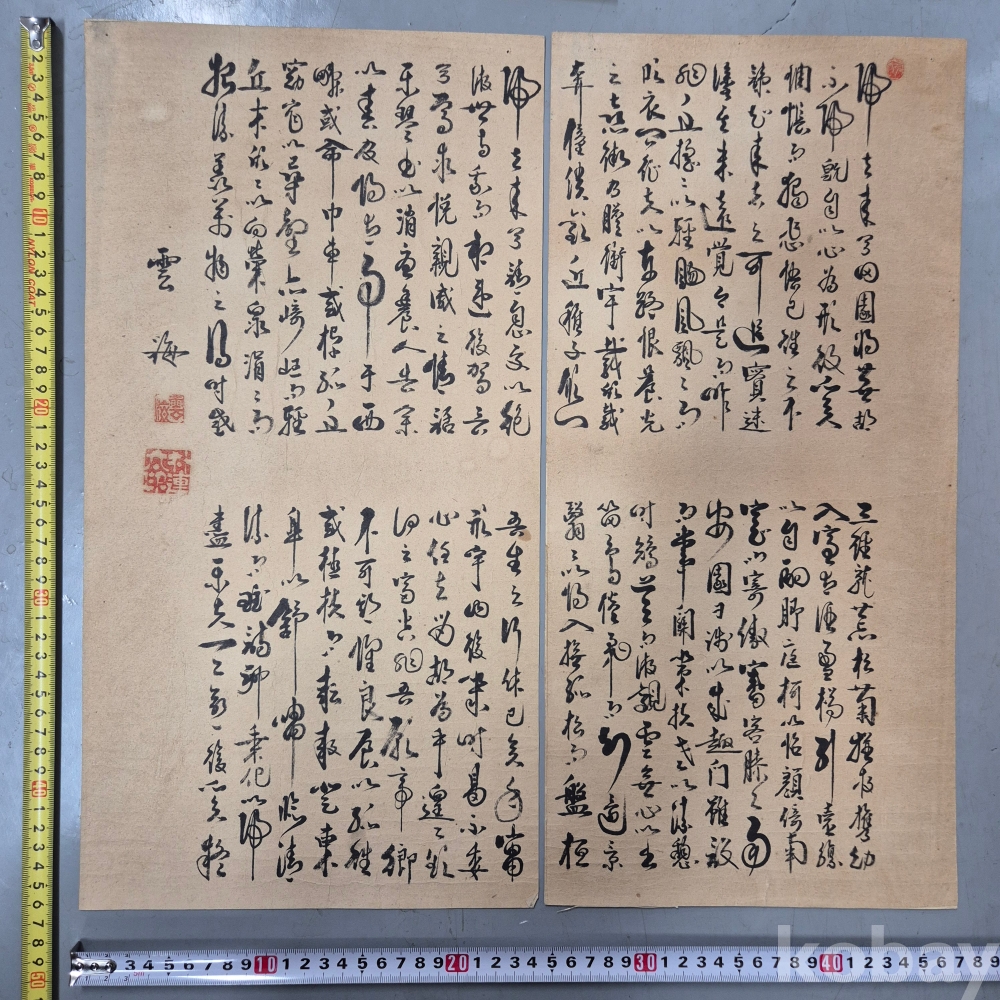 歸去來兮田園將蕪胡
不歸既自以心為形役奚
惆悵而獨悲悟已往之不
諫知來者之可追實迷
途其未遠覺今是而昨
非舟搖〻以輕颺風飄〻而
吹衣問征夫以前路恨晨光
之熹微乃瞻衡宇載欣載
奔僮僕歡迎稚子候門
三徑就荒松菊猶存攜幼
入室有酒盈樽引壺觴
以自酌眄庭柯以怡顏倚南
窓以寄傲審容膝之易
安園日涉以成趣門雖設
而常關策扶老以流憩
時矯首而遐觀雲無心以出
岫鳥倦飛而知還景
翳〻以將入撫孤松而盤桓
歸去來兮請息交以絶
游世與我而相違復駕言
兮焉求悅親戚之情話
樂琴書以消憂農人告余
以春及將有事于西
疇或命巾車或棹孤舟既
窈窕以尋壑亦崎嶇而經
丘木欣〻以向榮泉涓〻而
始流羨萬物之得時感
吾生之行休已矣乎寓
形宇內復幾時曷不委
心任去留胡為乎遑〻欲
何之富貴非吾願帝鄉
不可期懷良辰以孤往
或植杖而耘耔登東
皐以舒嘯臨清
流而賦詩聊乘化以歸
盡樂夫天命復奚疑
雲海
NYLON COAT
kobay